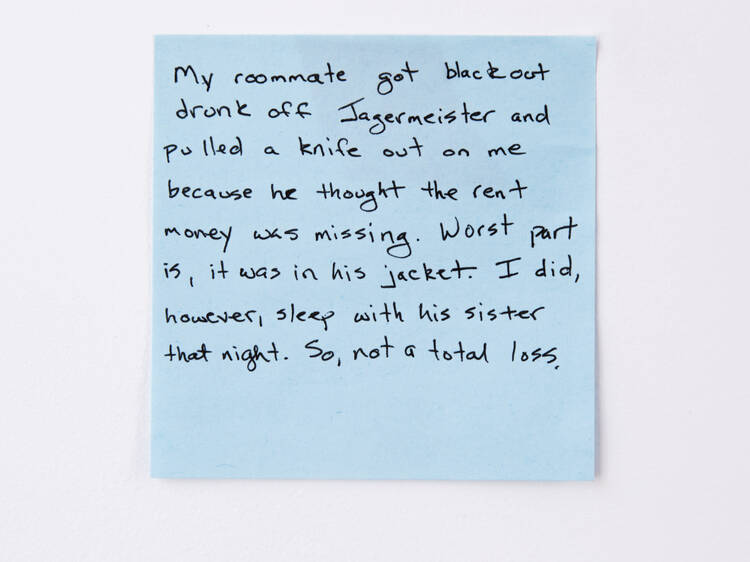 My roommate got blackout
drunk off Jagermeister and
pulled a knife out on me
because he thought the rent
money was missing. Worst part
is, it was in his jacket. I did,
however, sleep with his sister
that night. So, not a total loss.